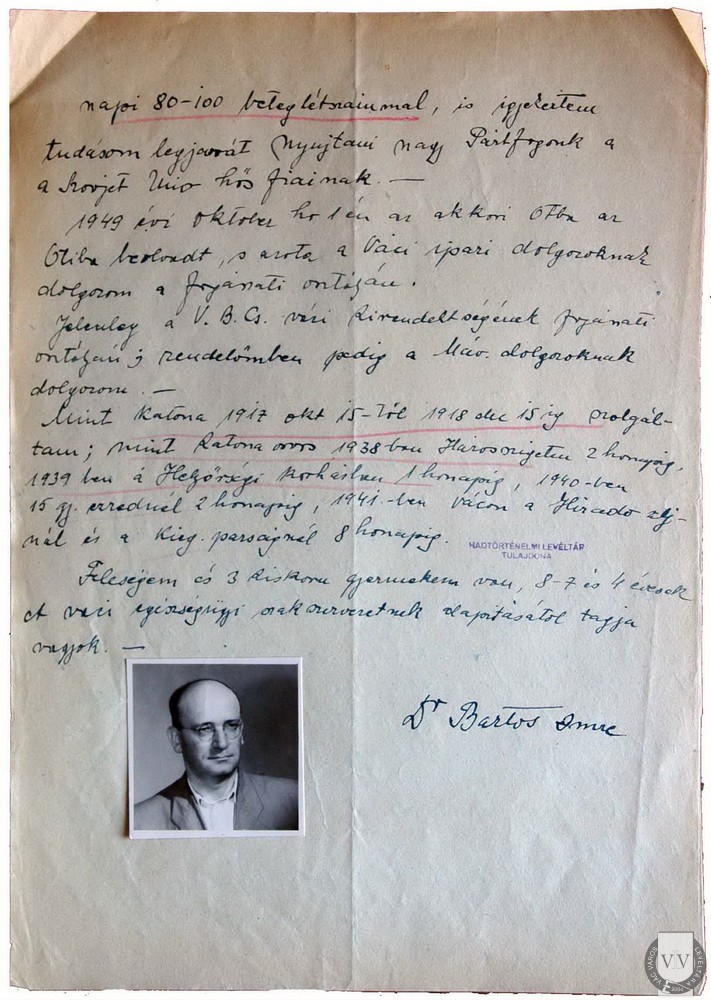 napi 80-100 beteglétszámmal, is igyekeztem
tudásom legjavát nyujtani nagy Pártfogonk a
a Szovjet Unio hős fiainak. —
1949 évi október ho 1én az akkori OTba az
Otiba beolvadt, s azota a Váci ipari dolgozoknak
dolgozom a fogászati osztályán.
Jelenleg a V. B. Cs. váci kirendeltségének fogászati
osztályán; rendelőmben pedig a Máv. dolgozoknak
dolgozom. —
Mint katona 1917 okt 15-től 1918 dec 15ig szolgál-
tam; mint katona orvos 1938-ban Hárosszigeten 2 honapig,
1939 ben a Helyőrségi Korházban 1 honapig, 1940-ben
15 gy. ezrednél 2 honapig, 1941-ben Vácon a Hirado zlj-
nál és a Kieg. parságnál 8 honapig.
HADTÖRTÉNELMI LEVÉLTÁR
TULAJDONA
Feleségem és 3 kiskoru gyermekem van, 8-7 és 4 évesek
A váci egészségügyi szakszervezetnek alapításától tagja
vagyok. —
Dr Bartos Imre
VÁC VÁROS LEVÉLTÁRA
VV